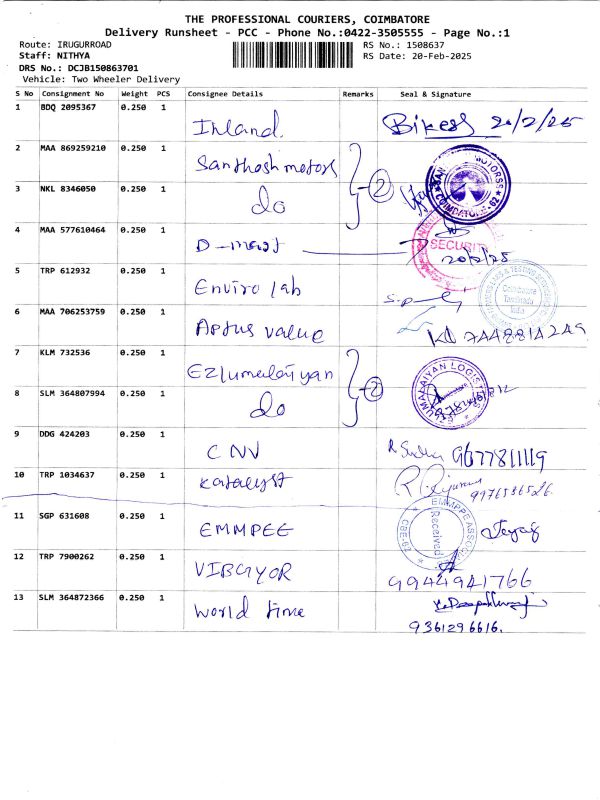 THE PROFESSIONAL COURIERS, COIMBATORE
Delivery Runsheet - PCC - Phone No.:0422-3505555 - Page No.:1
Route: IRUGURROAD RS No.: 1508637
Staff: NITHYA RS Date: 20-Feb-2025
DRS No.: DCJB150863701
Vehicle: Two Wheeler Delivery
S No Consignment No Weight PCS Consignee Details Remarks Seal & Signature
1 BDQ 2095367 0.250 1 Inland. Bikes 20/2/25
2 MAA 869259210 0.250 1 Santhosh motors 2
3 NKL 8346050 0.250 1 do COIMBATORE - 62
4 MAA 577610464 0.250 1 D-mart SECURITY 20/2/25
5 TRP 612932 0.250 1 Enviro lab Coimbatore Tamilnadu India
6 MAA 706253759 0.250 1 Aptus value
7 KLM 732536 0.250 1 Ezlumalaiyan 2
8 SLM 364807994 0.250 1 do
9 DDG 424203 0.250 1 CNV R Sudha 9677811119
10 TRP 1034637 0.250 1 Katalyst 9976586526
11 SGP 631608 0.250 1 EMMPEE Received CBE-62
12 TRP 7900262 0.250 1 VIBGYOR 9944941766
13 SLM 364872366 0.250 1 World time 9361296616.